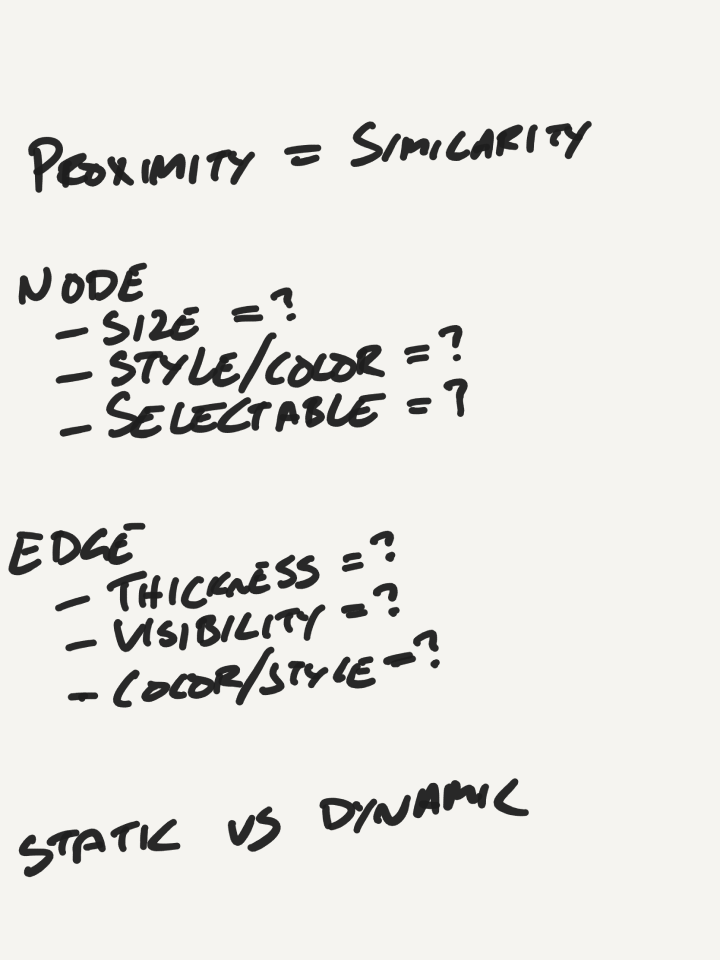 PROXIMITY = SIMILARITY
NODE
- SIZE = ?
- STYLE/COLOR = ?
- SELECTABLE = ?
EDGE
- THICKNESS = ?
- VISIBILITY = ?
- COLOR/STYLE = ?
STATIC VS DYNAMIC